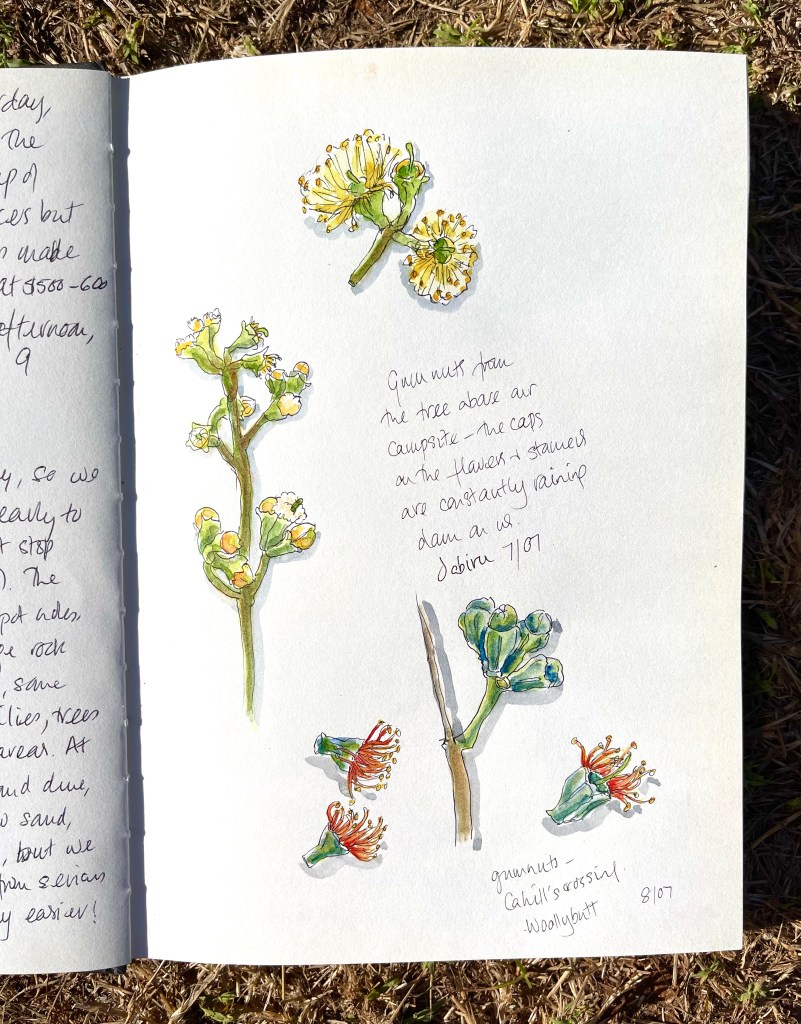 rday,
The
p of
ces but
made
at $500-600
afternoon,
9
y, so we
early to
t stop
). The
pot holes,
rock
, some
lies, trees
areas. At
and dune,
sand,
, but we
from serious
y easier!
Gumnuts from
the tree above our
campsite - the caps
on the flowers + stamens
are constantly raining
down on us.
Jabiru 7/07
gumnuts -
Cahill's crossing.
Woollybutt
8/07